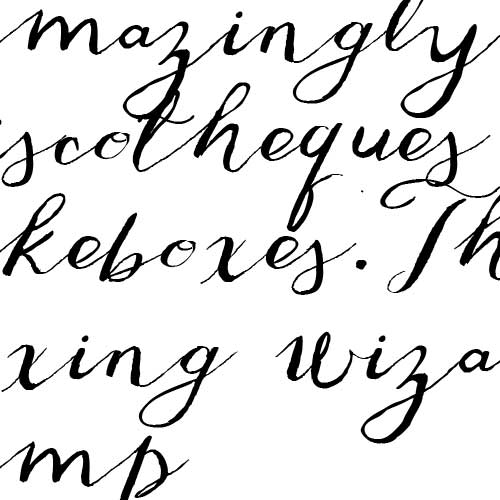 mazingly
iscotheques
keboxes. Th
xing wiza
mp